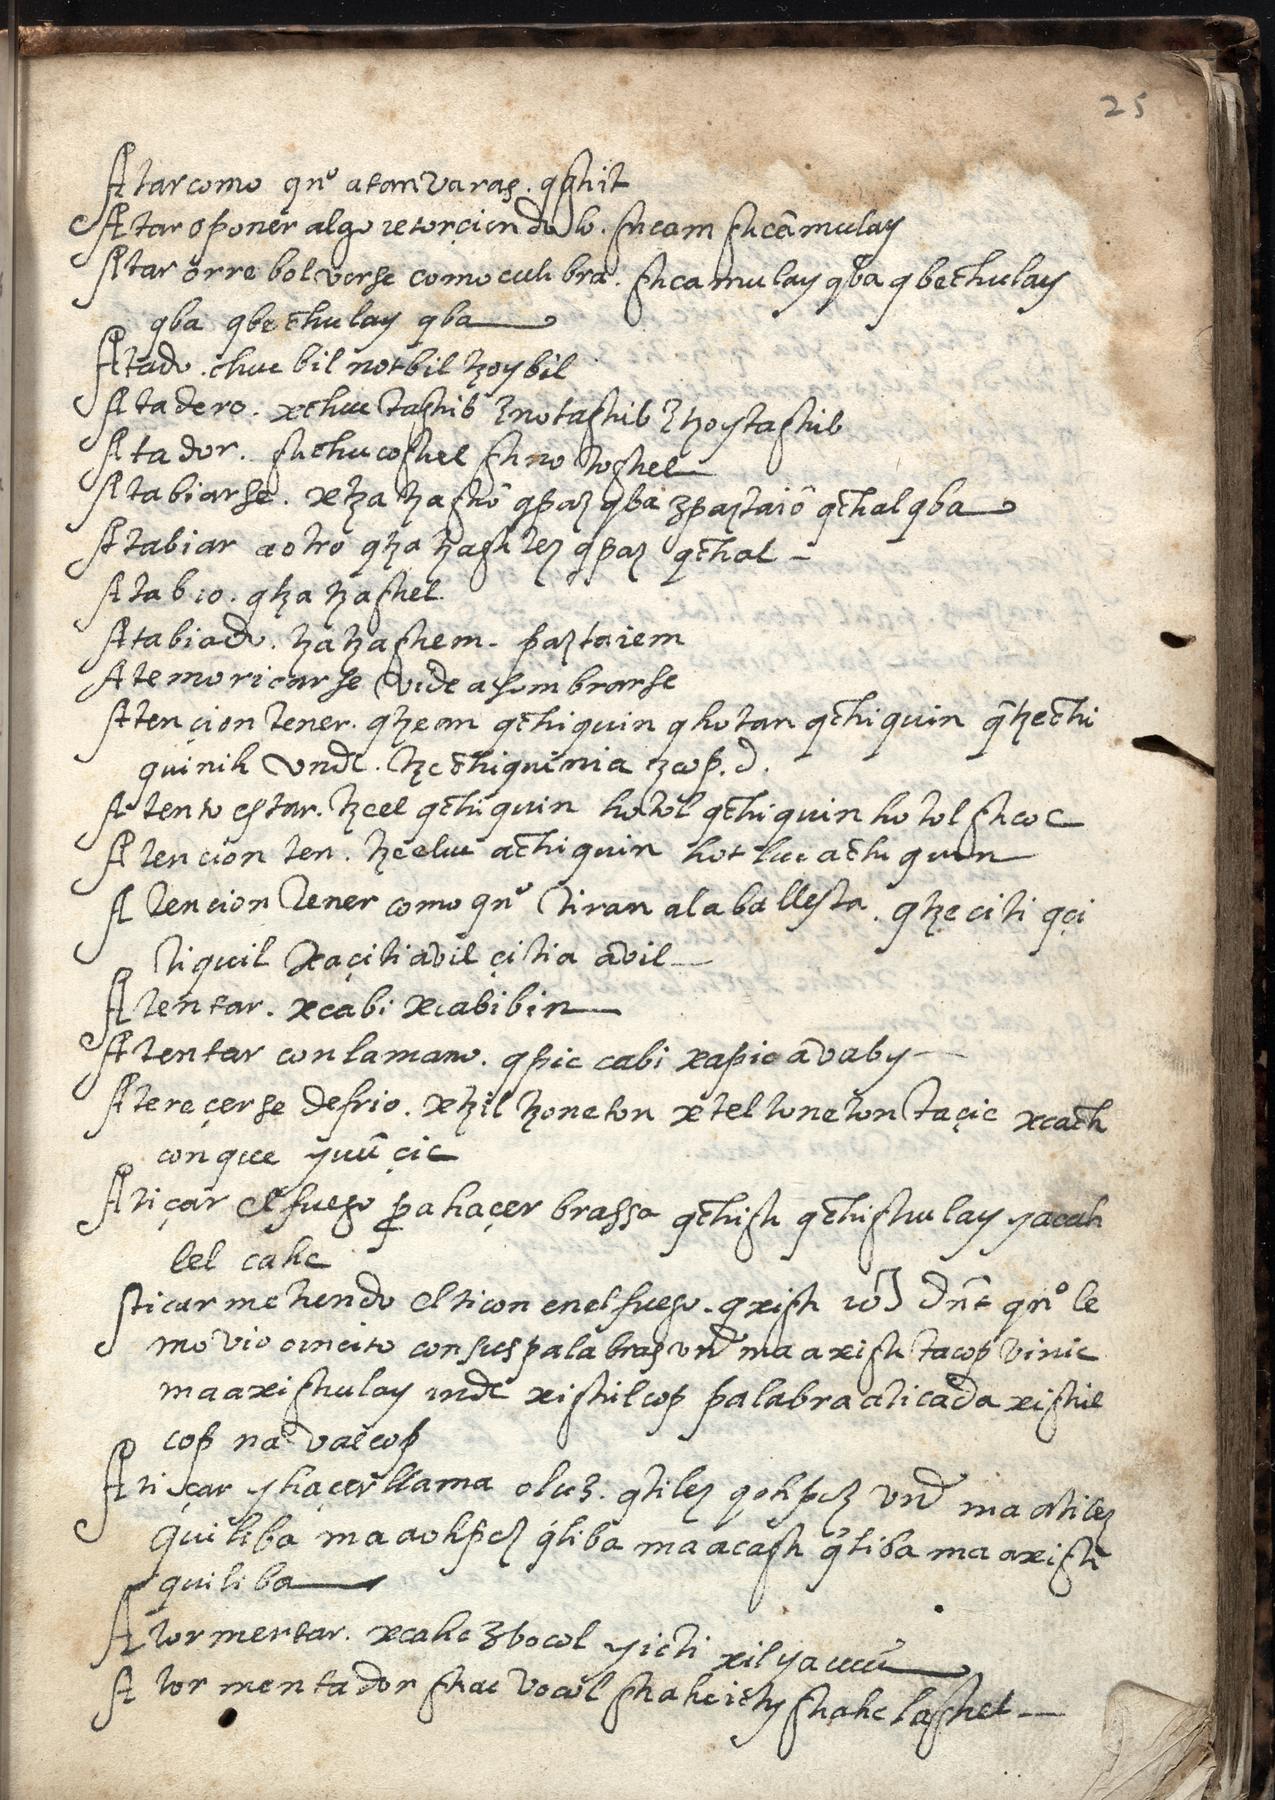 25
Atar como qnº atan varas. qshit
Atar o poner algo retorçiendolo. shcam shcãmulay
Atar o rrebolverse como culebra. shcamulay qba qbechulay
qba qbechulay qba
Atado. chuc bil not bil tzoy bil
Atadero. xchuc tashib znotashib ztzoytashib
Atador. shchucoshel shnotoshel
Atabiarse. xtzatzashõ qpaz qba zpaztaiõ qchal qba
Atabiar a otro qtzatzashtez qpaz qchal
Atabio. qtzatzashel
Atabiado. tzatzashem. paztaiem
Atemoriçarse vide asombrarse
Atençion tener. qtzean qchiquin qhotan qchiquin q̃tzechi
quinih unde. tzechiquinia zcop. d.
Atento estar. tzeel qchiquin hotol qchiquin hotol shcoc
Atencion ten. tzeeluc achiquin hotluc achiquin
Atencion tener como qnº tiran ala ballesta. qtzeciti qçi
tiquil xaçitiavil çitia avil
Atentar. xcabi xcabibin
Atentar con la mano. qpic cabi xapic avaby
Atereçerse de frio. xtzil tzoneton xtel toneton taçic xcach
con que yuũ çic
Atiçar el fuego pa haçer brassa qchish qchishulay yacah
lel cahc
Aticar metiendo el ticon en el fuego. qxish dnt qnº le
movio o incito con sus palabras unde ma axish tacop vinic
ma axishulay unde xishilcop palabra aticada xishil
cop na valcop
Atiçar y haçer llama o luz. qtilez qohpez unde ma atilez
quiliba ma aohpez qliba ma acash qliba ma axish
quiliba
Atormentar. xcahc zvocol yicti xil yacuũ
Atormentador shac vocol shahcichy shahclashel